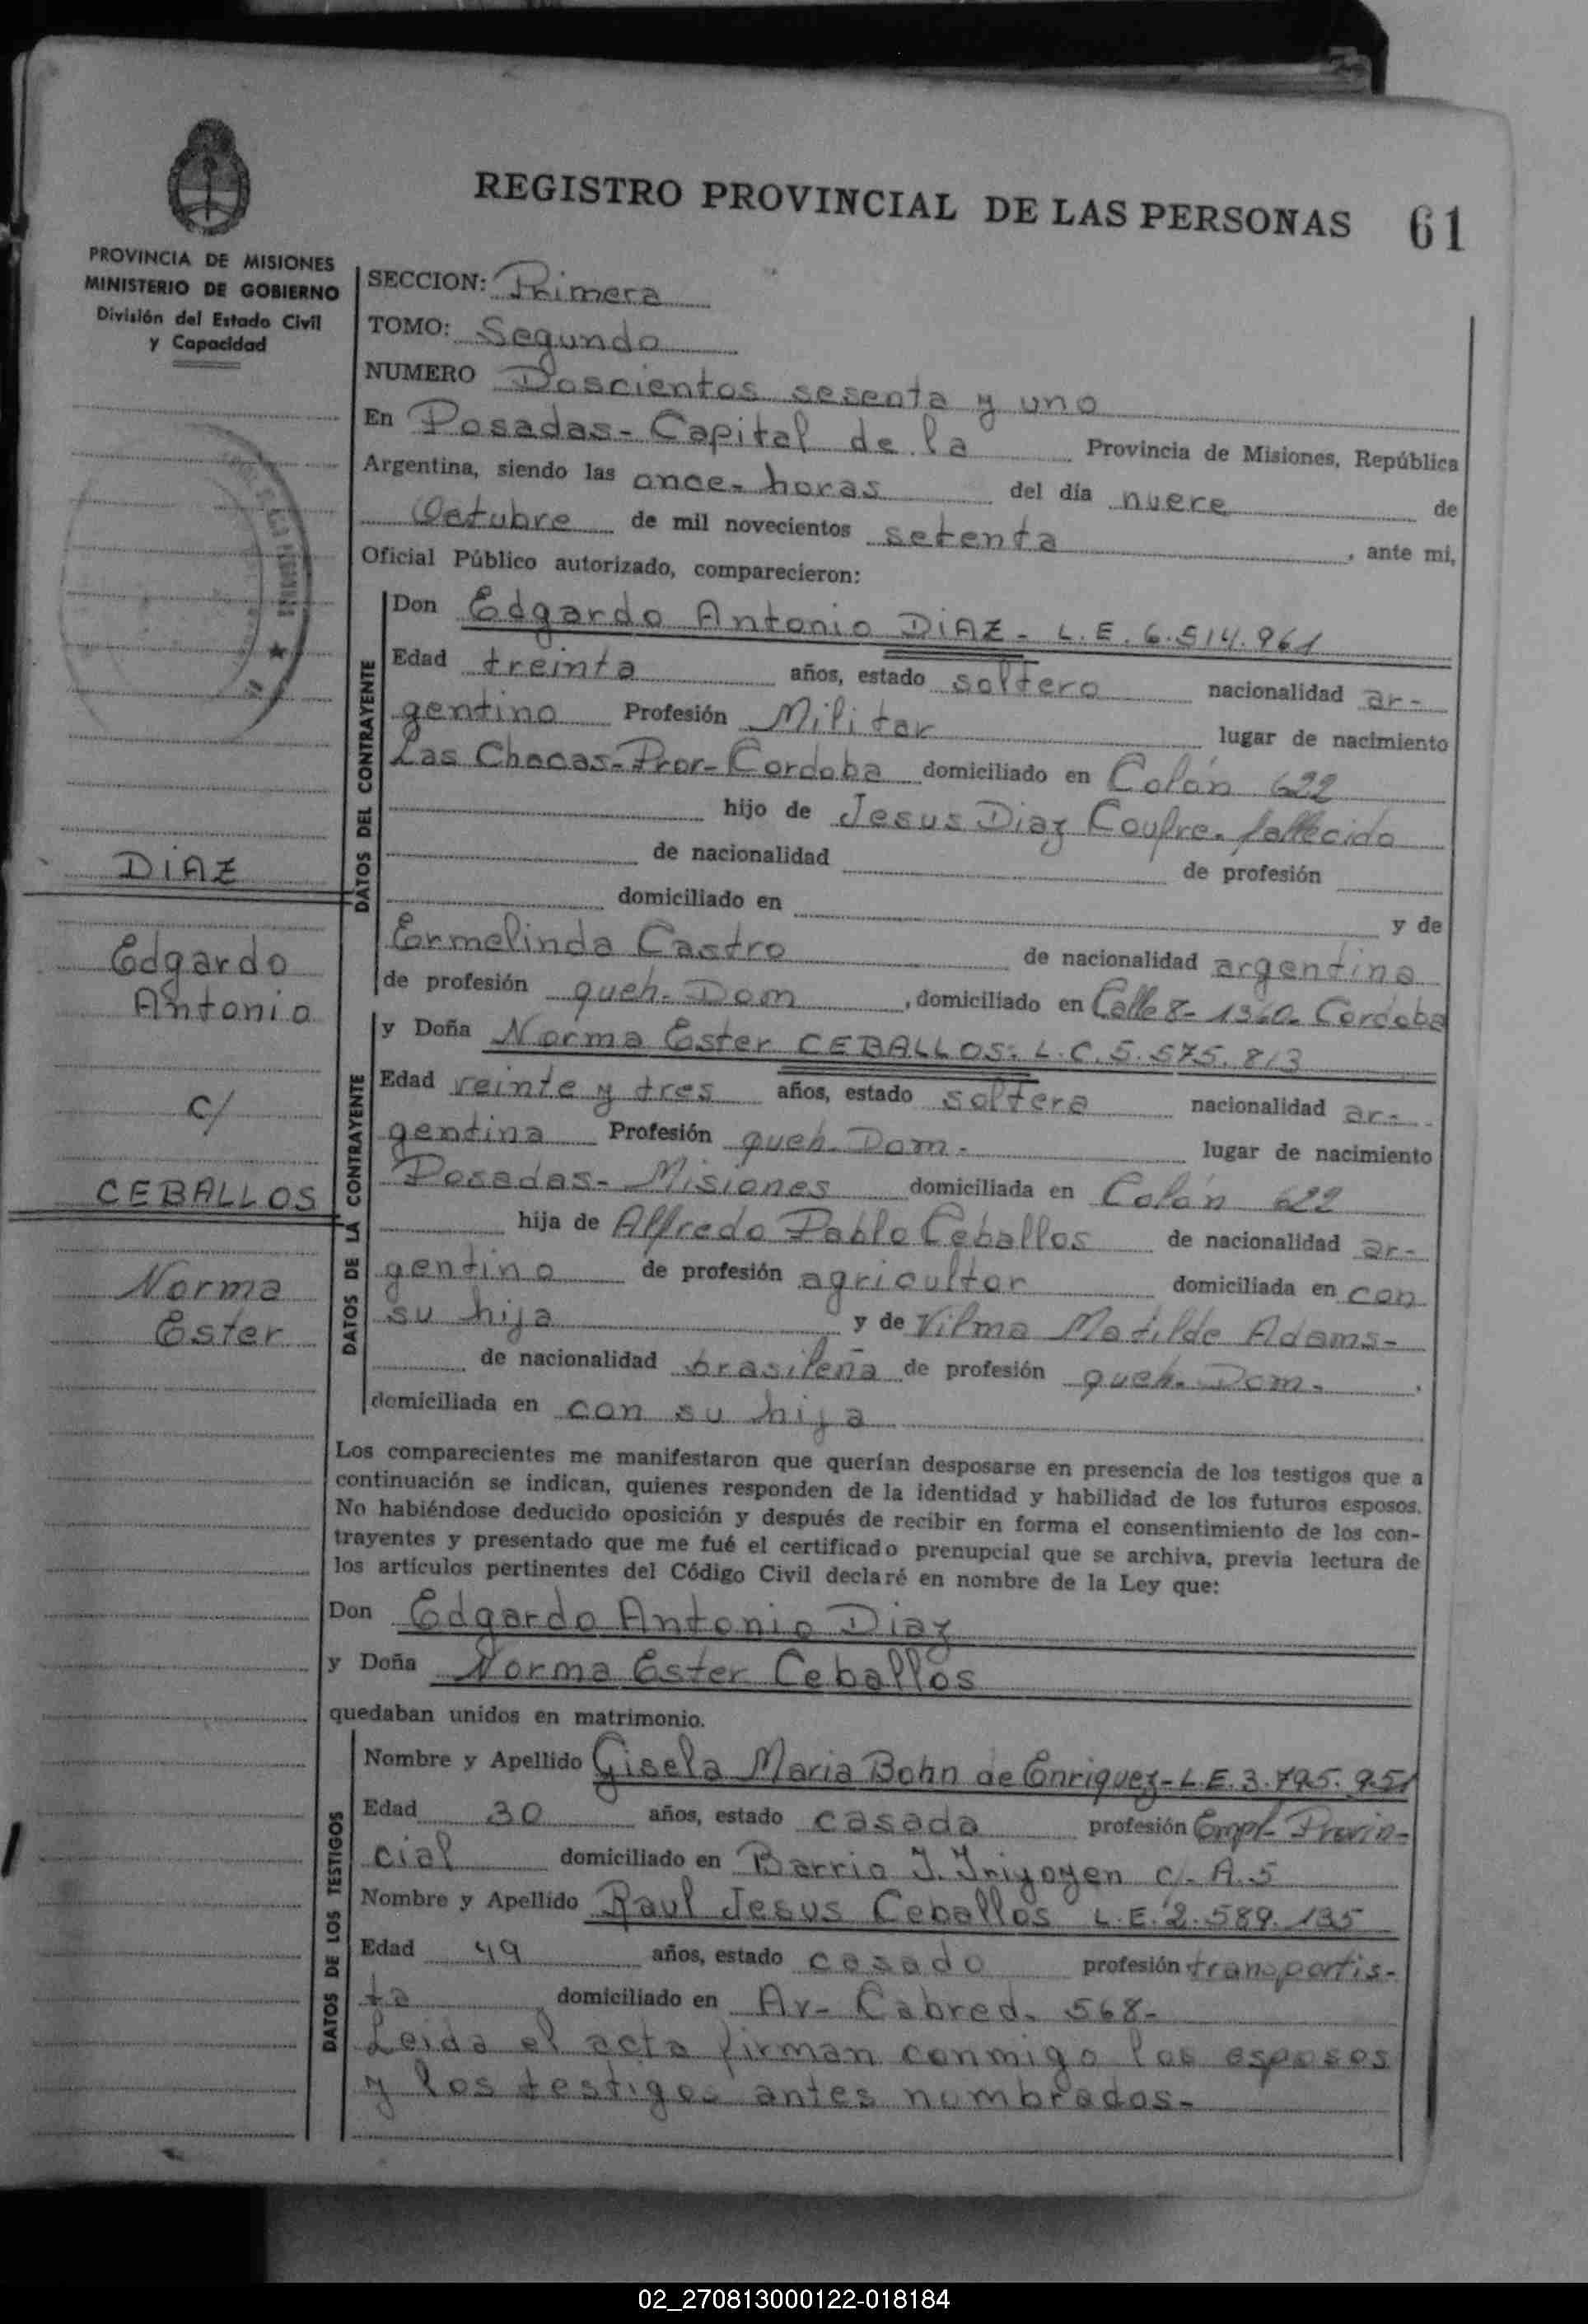 REGISTRO PROVINCIAL DE LAS PERSONAS 61
PROVINCIA DE MISIONES
MINISTERIO DE GOBIERNO
División del Estado Civil
y Capacidad
SECCION: Primera
TOMO: Segundo
NUMERO Doscientos sesenta y uno
En Posadas - Capital de la Provincia de Misiones, República
Argentina, siendo las once - horas del día nueve de
Octubre de mil novecientos setenta, ante mi,
Oficial Público autorizado, comparecieron:
DATOS DEL CONTRAYENTE
Don Edgardo Antonio DIAZ - L.E. 6.514.961
Edad treinta años, estado soltero nacionalidad ar-
gentino Profesión Militar lugar de nacimiento
Las Chacas - Prov - Cordoba domiciliado en Colón 622
hijo de Jesus Diaz fallecido
de nacionalidad de profesión
domiciliado en y de
Ermelinda Castro de nacionalidad argentina
de profesión queh. Dom, domiciliado en Calle 8 - 1360 - Cordoba
DIAZ
Edgardo
Antonio
c/
CEBALLOS
Norma
Ester
DATOS DE LA CONTRAYENTE
y Doña Norma Ester CEBALLOS - L.C. 5.575.813
Edad veinte y tres años, estado soltera nacionalidad ar-
gentina Profesión queh. Dom. lugar de nacimiento
Posadas - Misiones domiciliada en Colón 622
hija de Alfredo Pablo Ceballos de nacionalidad ar-
gentino de profesión agricultor domiciliada en con
su hija y de Vilma Matilde Adams -
de nacionalidad brasileña de profesión queh. Dom.
domiciliada en con su hija
Los comparecientes me manifestaron que querían desposarse en presencia de los testigos que a
continuación se indican, quienes responden de la identidad y habilidad de los futuros esposos.
No habiéndose deducido oposición y después de recibir en forma el consentimiento de los con-
trayentes y presentado que me fué el certificado prenupcial que se archiva, previa lectura de
los artículos pertinentes del Código Civil declaré en nombre de la Ley que:
Don Edgardo Antonio Diaz
y Doña Norma Ester Ceballos
quedaban unidos en matrimonio.
DATOS DE LOS TESTIGOS
Nombre y Apellido Gisela Maria Bohn de Enriquez - L.E. 3.795.951
Edad 30 años, estado casada profesión Empl. Provin-
cial domiciliado en Barrio I. Irigoyen c/. A.5
Nombre y Apellido Raul Jesus Ceballos L.E. 2.589.135
Edad 49 años, estado casado profesión transportis-
ta domiciliado en Av - Cabred - 568 -
Leida el acta firman conmigo los esposos
y los testigos antes nombrados -
02_270813000122-018184